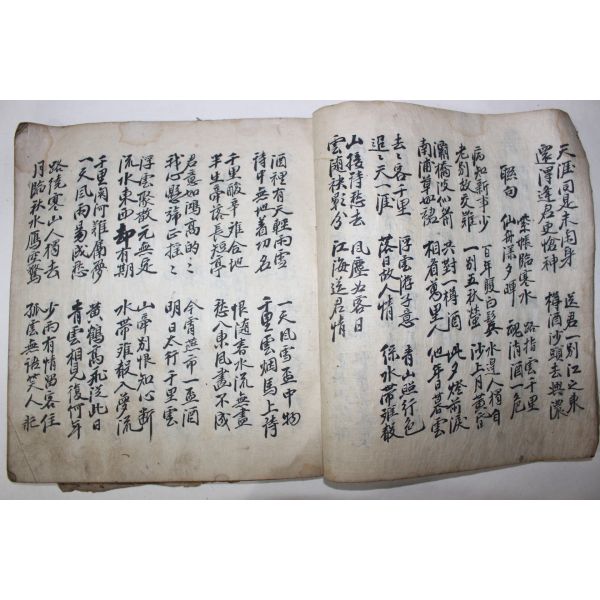 天涯同是未閑身 送君一別江之東
還 逢君更愴神 樽酒沙頭去興濃
聯句 帳臨寒水 路指雲千里
仙舟漾夕暉 消酒一危
病知新事少 百年雙白鬢 水邊人獨自
老別故交難 一別五秋螢 沙上月黃昏
灞橋波似前 只對一樽酒 此夕燈前淚
南浦草如 相看萬里人 他年日暮雲
去々客千里 浮雲游子意 青山照行色
迢々天一涯 落日故人情 綠水帶離聲
山後待愁去 風塵爲客日
雲隨袂影分 江海送君情
酒裡有天輕雨雪 一天風雪盃中物
詩中無世着功名 千里雲烟馬上詩
千里酸辛難合地 恨隨春水流無盡
半生啼淚長短亭 愁入東風畫不成
君意如鴻高的々 今宵燕市一盃酒
我心懸旆正搖々 明日太行千里雲
浮雲聚散元無定 山帶別恨和心斷
流水東西却有期 水帶離聲入夢流
千里關河難屬夢 黃鶴高飛從此日
一天風雨易成愁 青雲相見復何年
路繞寒山人獨去 少雨有情留客住
月臨秋水雁空驚 孤雲無語笑人忙